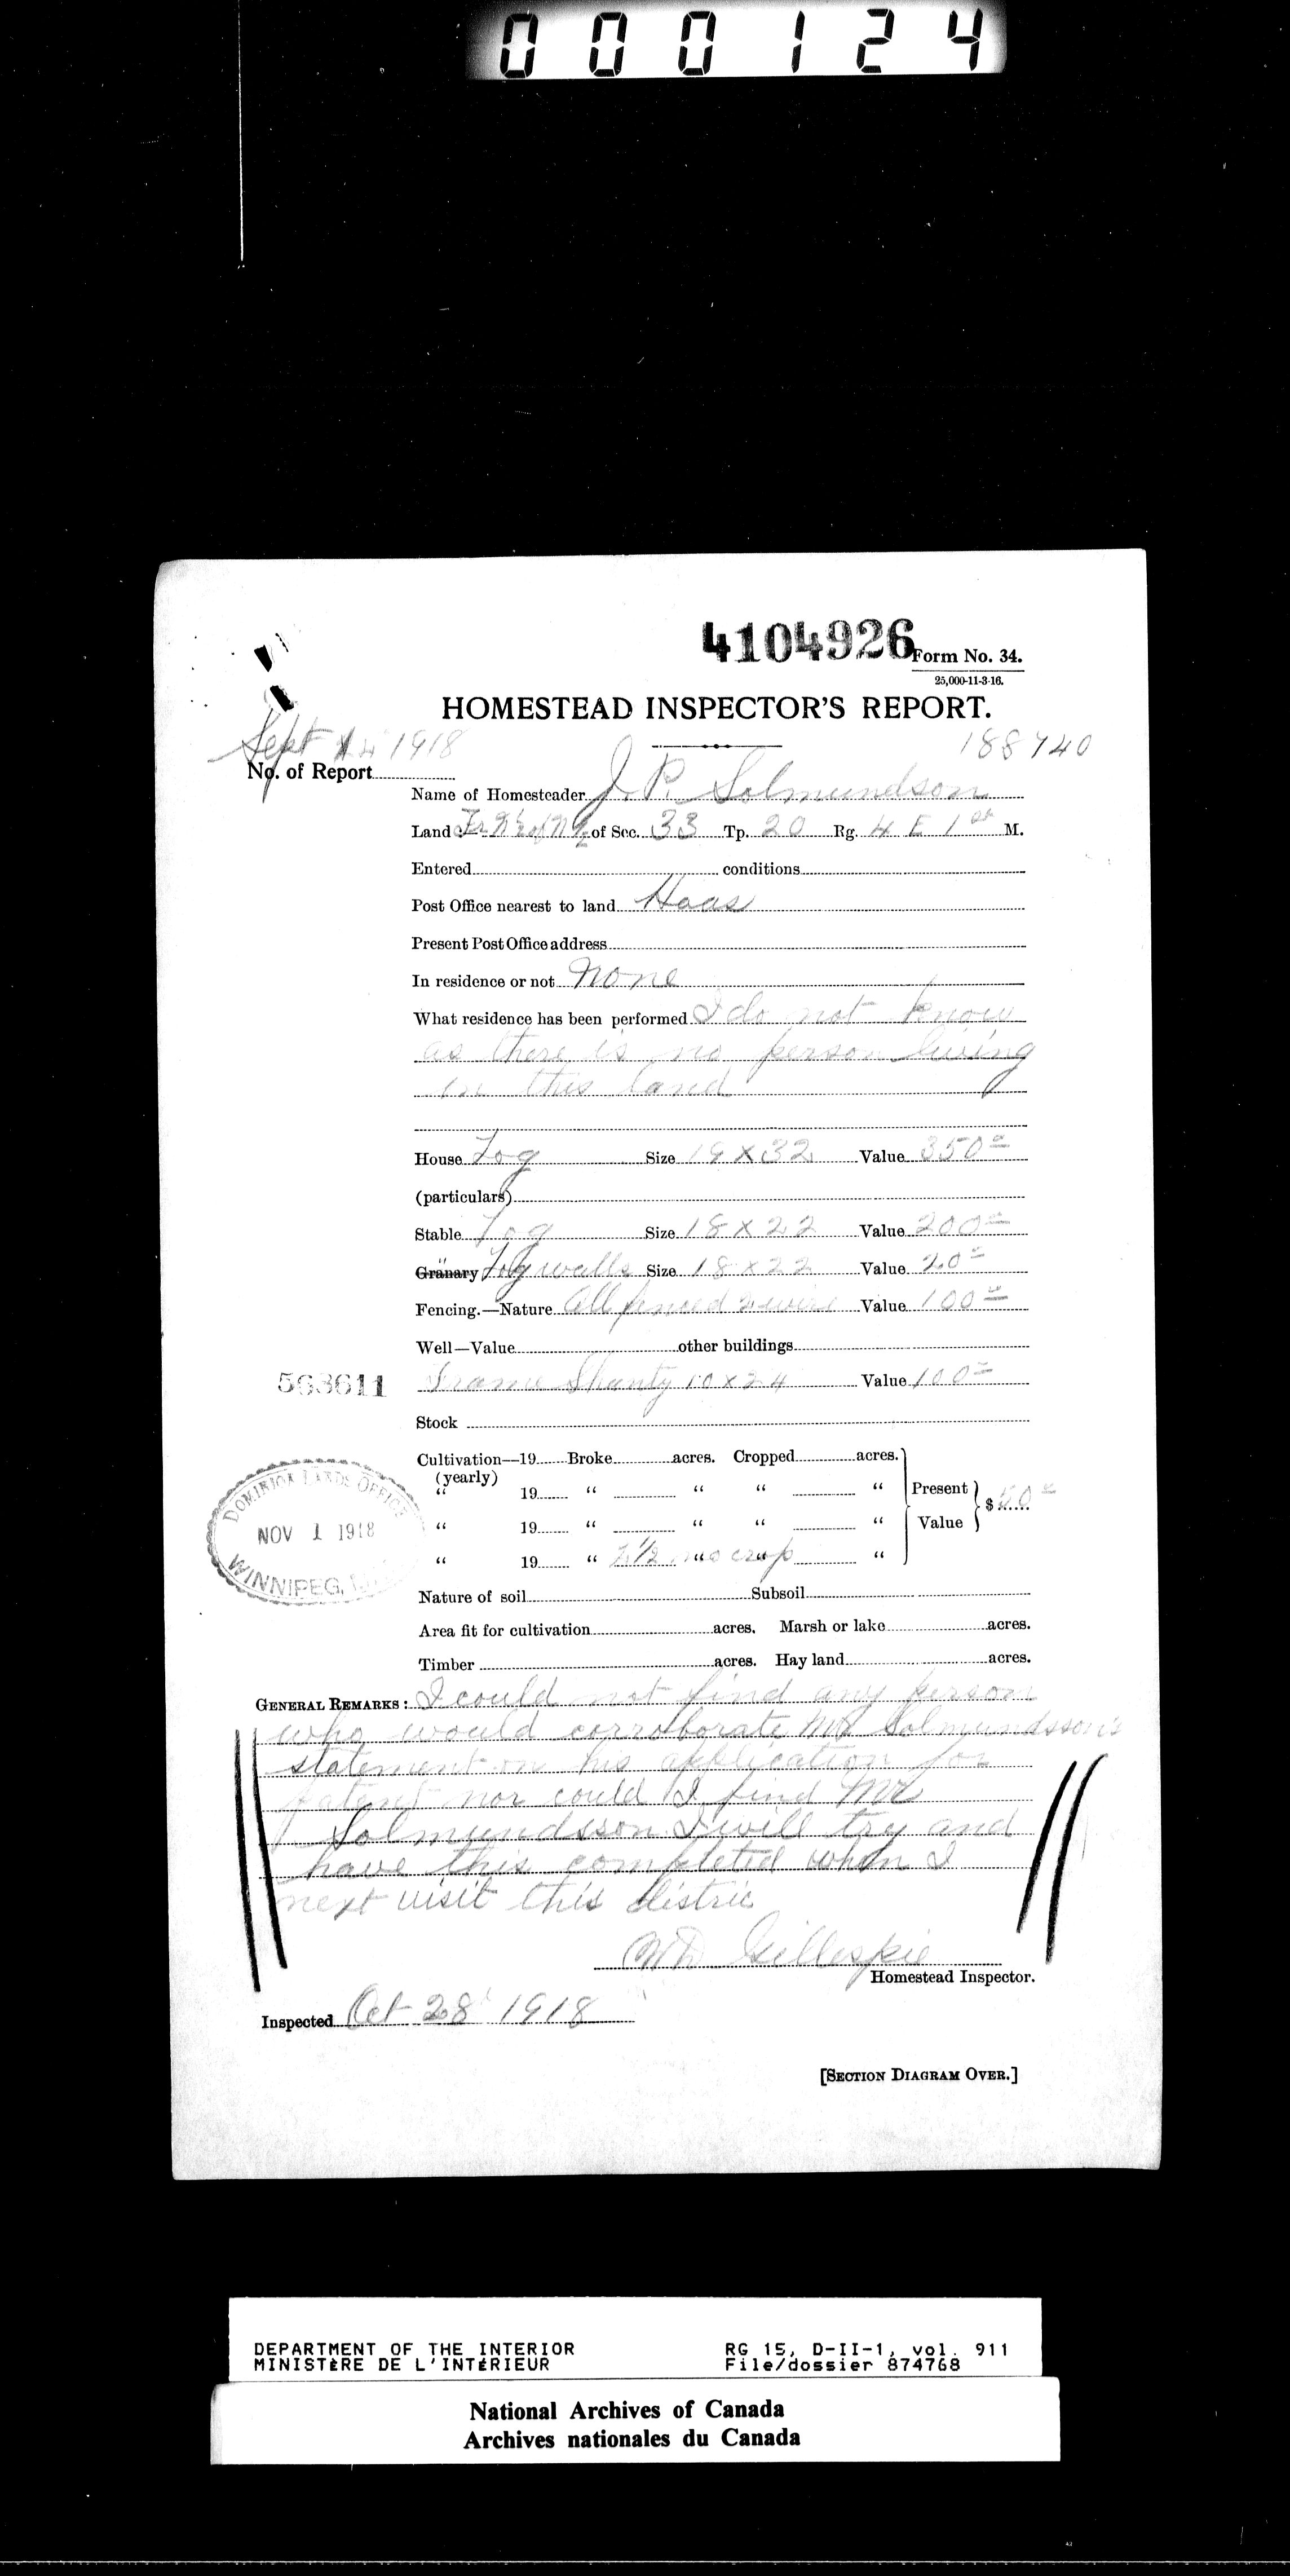 000124
4104926 Form No. 34.
25,000-11-3-16.
HOMESTEAD INSPECTOR'S REPORT.
Sept 1918 188740
No. of Report
Name of Homesteader J. P. Solmundson
Land of Sec. 33 Tp. 20 Rg. 4 E 1st M.
Entered conditions
Post Office nearest to land Haas
Present Post Office address
In residence or not None
What residence has been performed I do not know
as there is no person living
on this land
House Log Size x 32 Value 350
(particulars)
Stable Log Size 18 x 22 Value 200
Granary Log walls Size 18 x 22 Value 20
Fencing.—Nature All fenced 2 wire Value 100
Well—Value other buildings
563611 Frame Shanty 10 x 24 Value 100
Stock
Cultivation—19 Broke acres. Cropped acres.
(yearly)
“ 19 “ “ “ “ Present
DOMINION LANDS OFFICE
NOV 1 1918
WINNIPEG,
“ 19 “ “ “ “ Value $
“ 19 “ 1/2 no crop “
Nature of soil Subsoil
Area fit for cultivation acres. Marsh or lake acres.
Timber acres. Hay land acres.
GENERAL REMARKS: I could not find any person
who would corroborate Mr Solmundsson's
statement on his application for
patent nor could I find Mr
Solmundsson I will try and
have this completed when I
next visit this distric
Gillespie
Homestead Inspector.
Inspected Oct 28 1918
[SECTION DIAGRAM OVER.]
DEPARTMENT OF THE INTERIOR RG 15, D-II-1, vol. 911
MINISTÈRE DE L'INTÉRIEUR File/dossier 874768
National Archives of Canada
Archives nationales du Canada